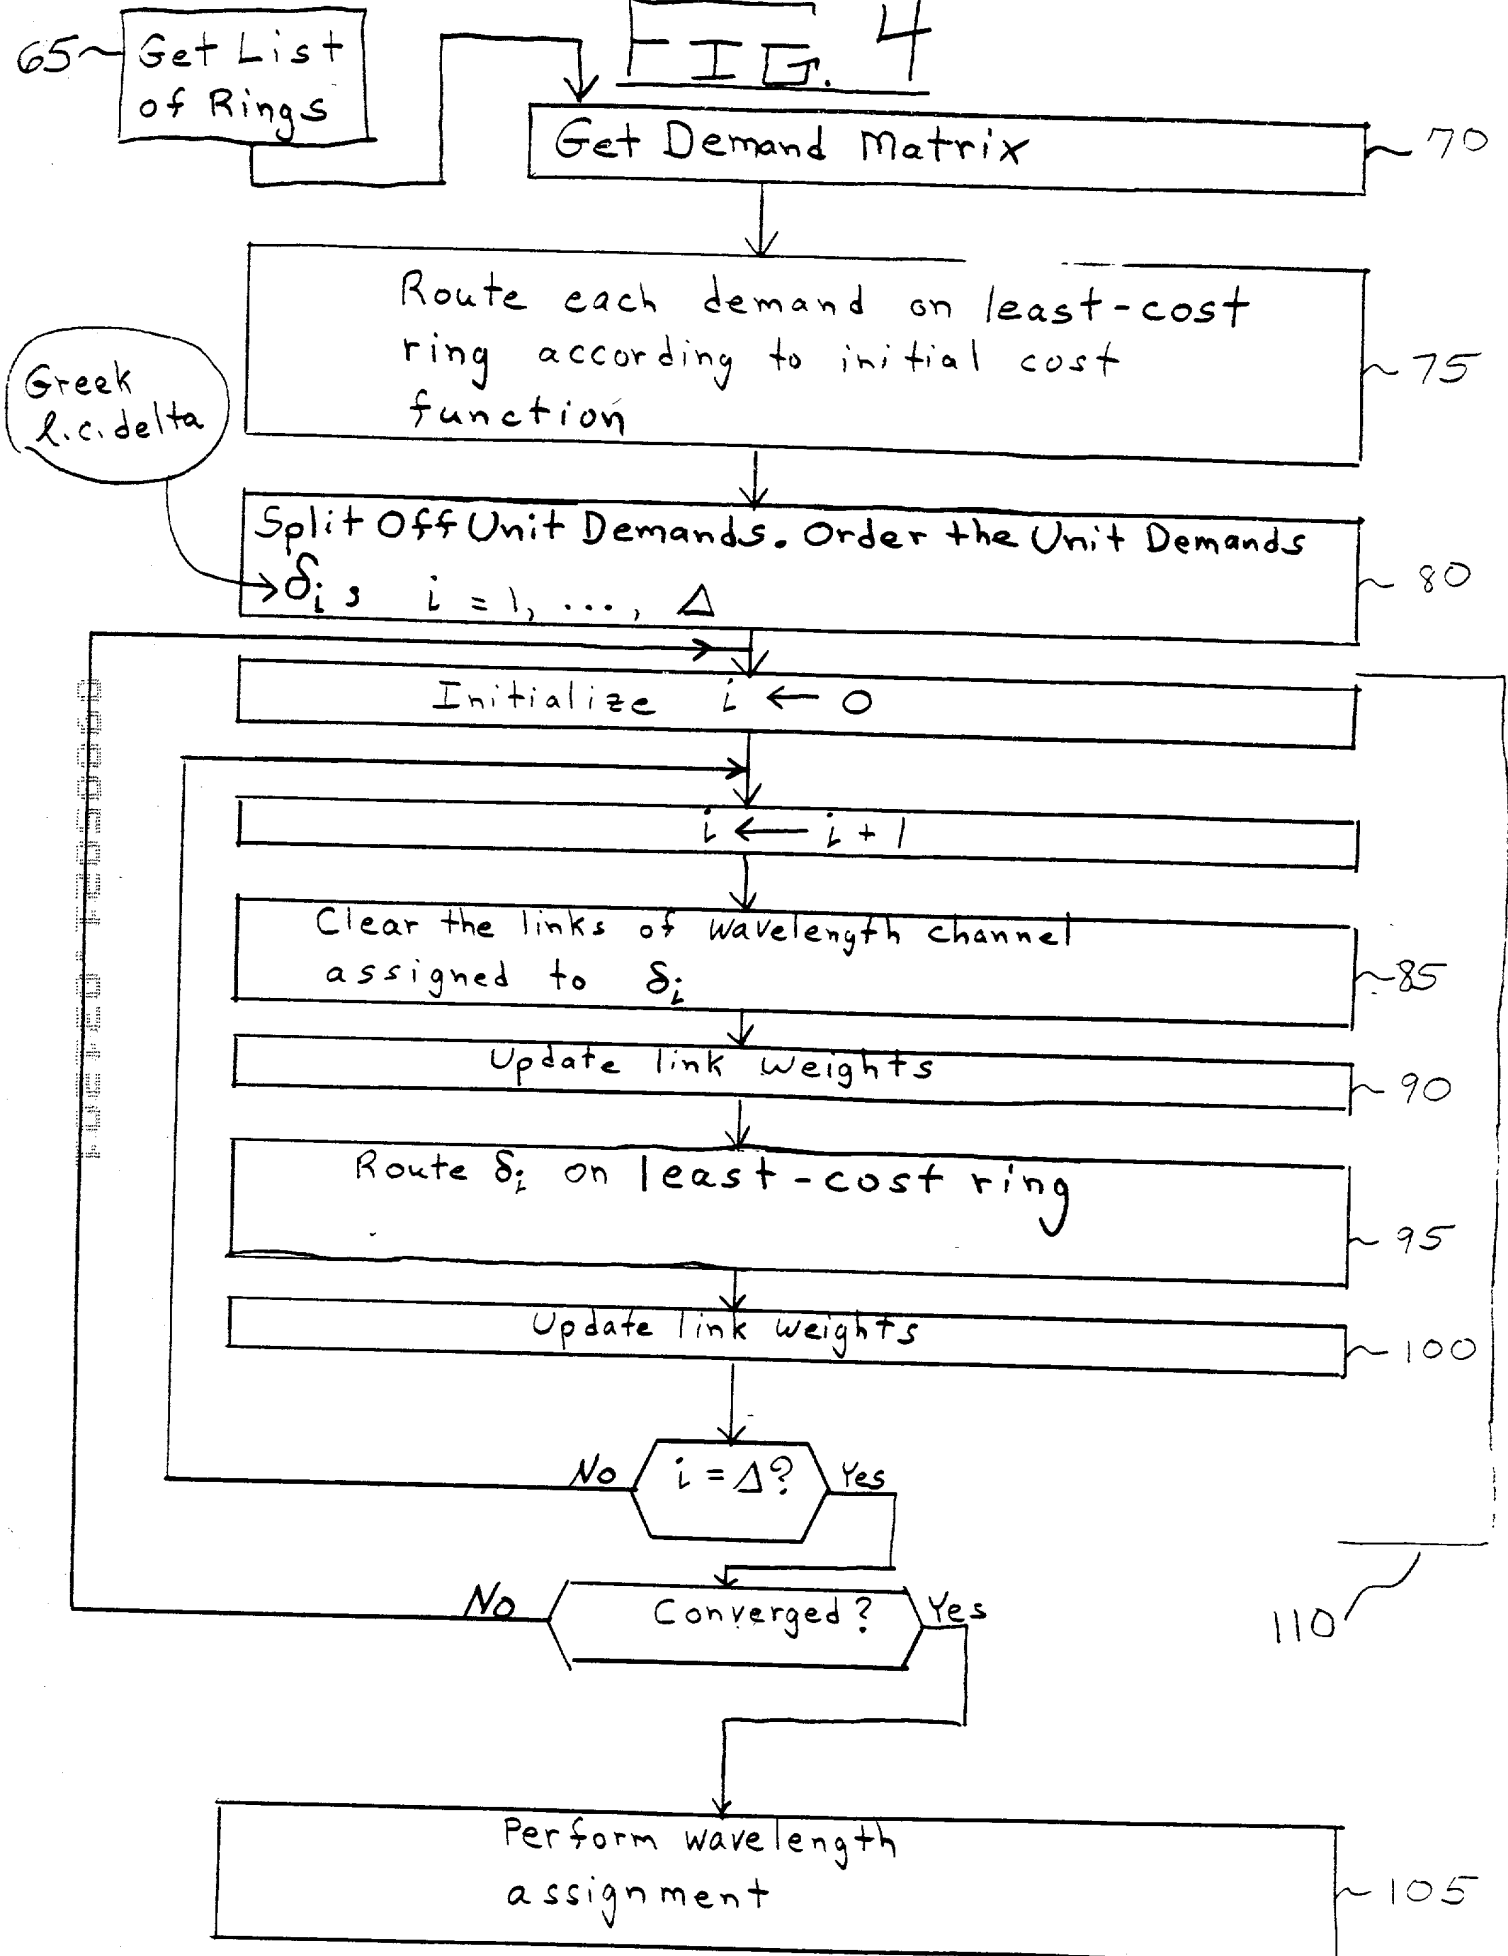 FIG. 4
65
Get List
of Rings
Get Demand Matrix
70
Route each demand on least-cost
ring according to initial cost
function
75
Greek
l.c. delta
Split Off Unit Demands. Order the Unit Demands
δi, i = 1, ..., Δ
80
Initialize i ← 0
i ← i + 1
Clear the links of wavelength channel
assigned to δi
85
Update link weights
90
Route δi on least-cost ring
95
Update link weights
100
No
i = Δ?
Yes
No
Converged?
Yes
110
Perform wavelength
assignment
105